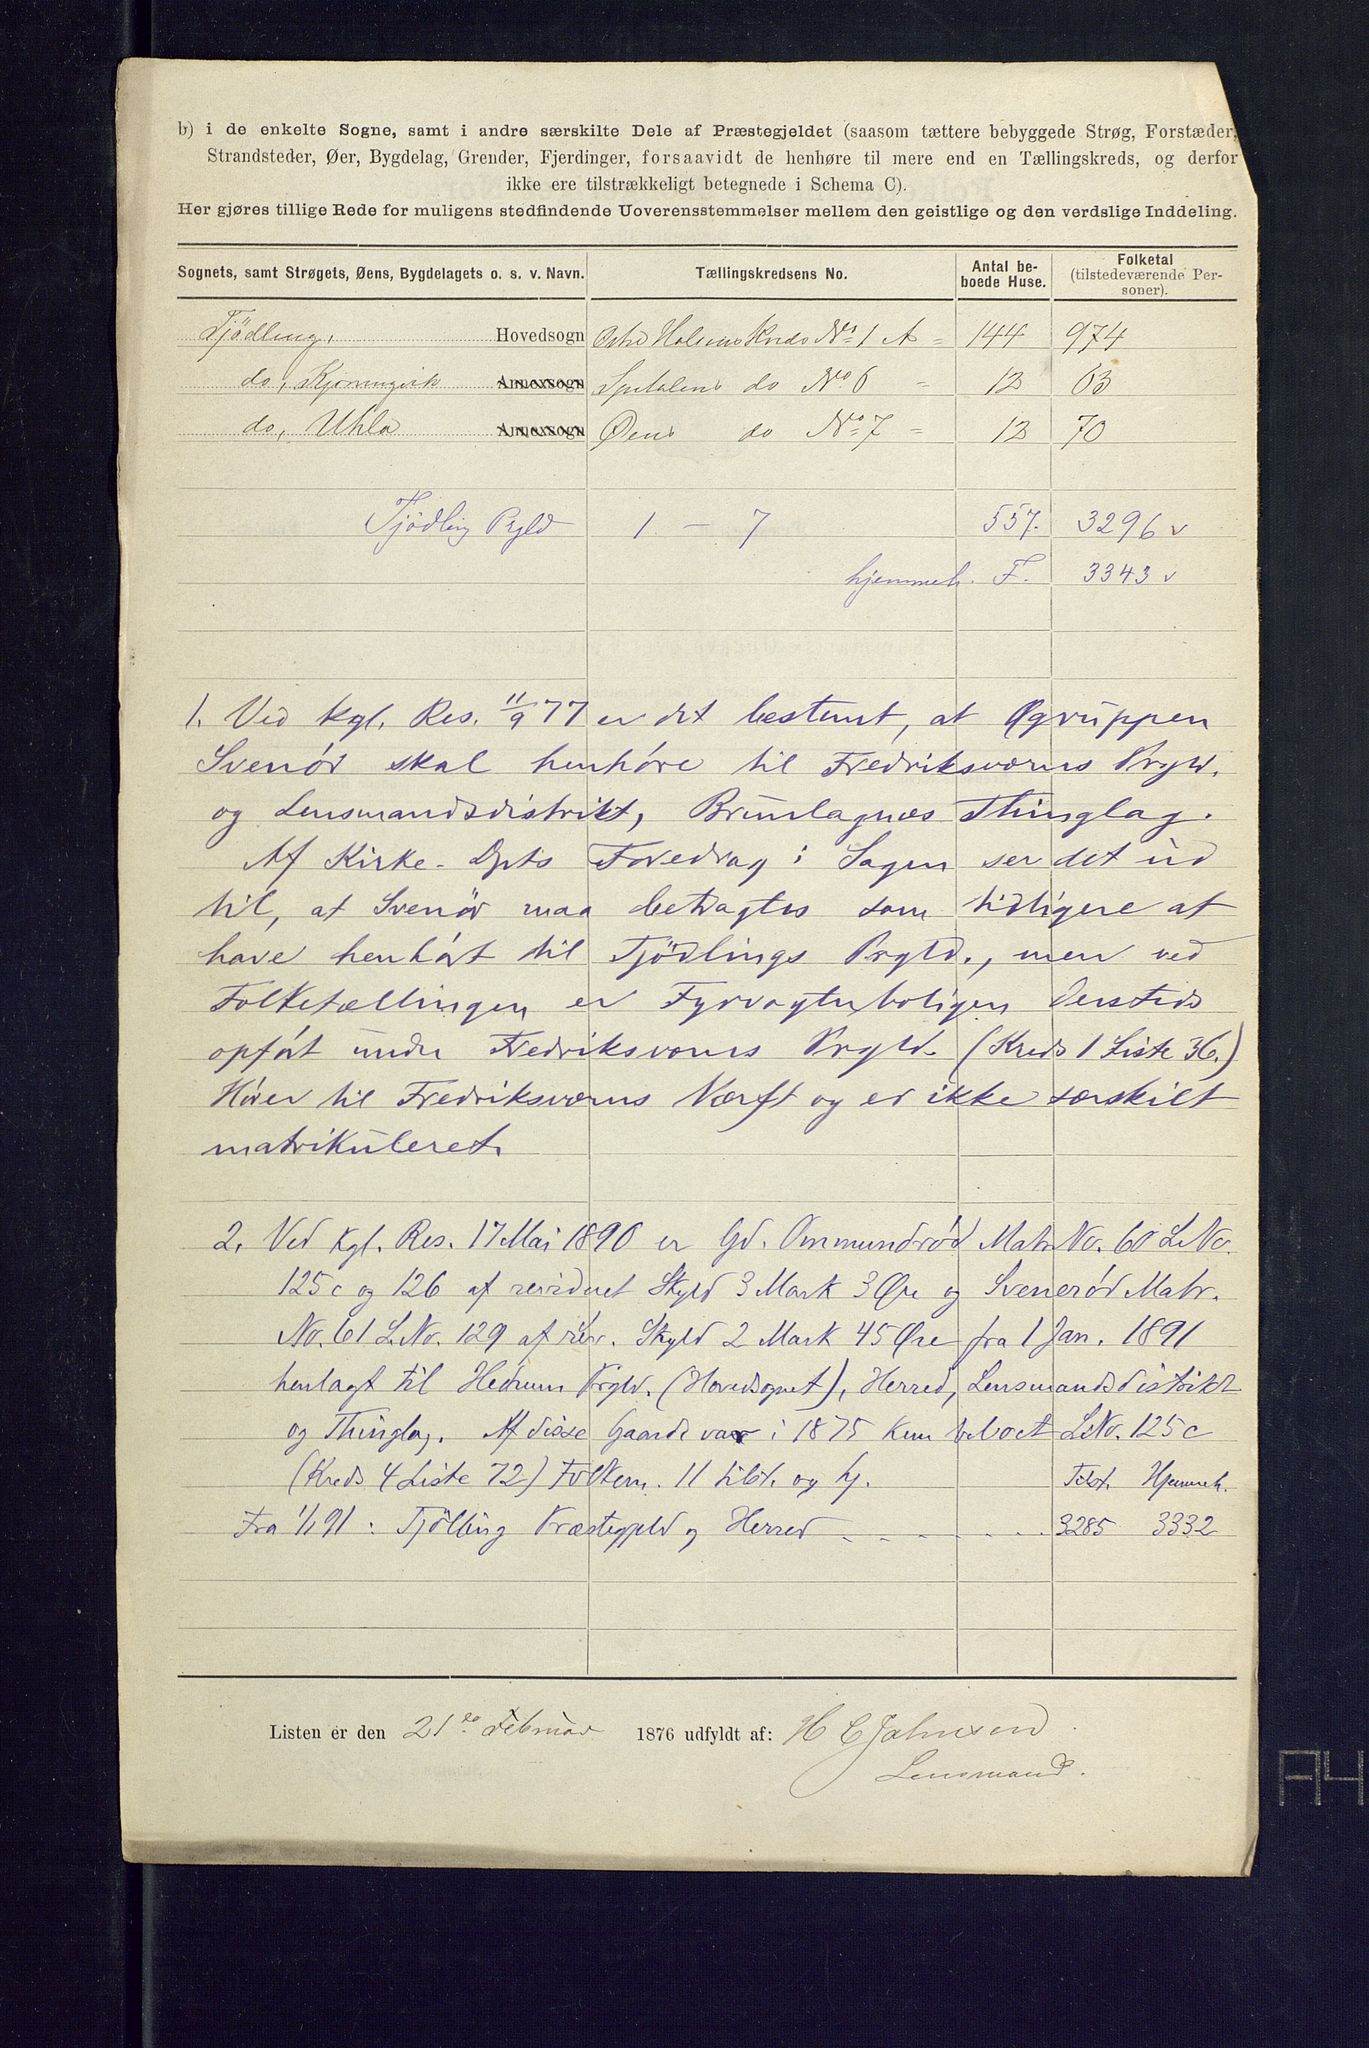 b) i de enkelte Sogne, samt i andre særskilte Dele af Præstegjeldet (saasom tættere bebyggede Strøg, Forstæder,
Strandsteder, Øer, Bygdelag, Grender, Fjerdinger, forsaavidt de henhøre til mere end en Tællingskreds, og derfor
ikke ere tilstrækkeligt betegnede i Schema C).
Her gjøres tillige Rede for muligens stedfindende Uoverensstemmelser mellem den geistlige og den verdslige Inddeling.
Sognets, samt Strøgets, Øens, Bygdelagets o. s. v. Navn. Tællingskredsens No. Antal beboede Huse. Folketal (tilstedeværende Personer).
Tjödling, Hovedsogn Østre Halsens Kreds No 1 A = 144 974
do, Annexsogn do No 6 = 12 63
do, Uhla Annexsogn Øens do No 7 = 12 70
Tjödling Prgld 1 - 7 557. 3296 v
hjemmeh. F. 3343 v
1. Ved kgl. Res. 11/9 77 er det bestemt, at Øgruppen
Svenör skal henhöre til Fredriksværns Prgld.
og Lensmandsdistrikt, Brunlagnæs Thinglag.
Af Kirke-Dpts Foredrag i Sagen ser det ud
til, at Svenör maa betragtes som tidligere at
have henhört til Tjödlings Prgld., men ved
Folketællingen er Fyrvogterboligen dersteds
opfört under Fredriksværns Prgld. (Kreds 1 Liste 36.)
Hörer til Fredriksværns Værft og er ikke særskilt
matrikuleret.
2. Ved kgl. Res. 17 Mai 1890 er Gd. Ommundröd Matr No. 60 L.No.
125c og 126 af revideret Skyld 3 Mark 3 Øre og Svenerød Matr.
No. 61 L.No. 129 af rev. Skyld 2 Mark 45 Øre fra 1 Jan. 1891
henlagt til Hedrum Prgld. (Hovedsognet), Herred, Lensmandsdistrikt
og Thinglag. Af disse Gaarde var i 1875 kun beboet L.No. 125c
(Kreds 4 Liste 72) Folkem. 11 tilst. og hj. Tilst. Hjemmeh.
Fra 1/1 91. Tjölling Præstegjeld og Herred - - - - - 3285 3332
Listen er den 21de Februar 1876 udfyldt af: H C Johnsen
Lensmand.
A4